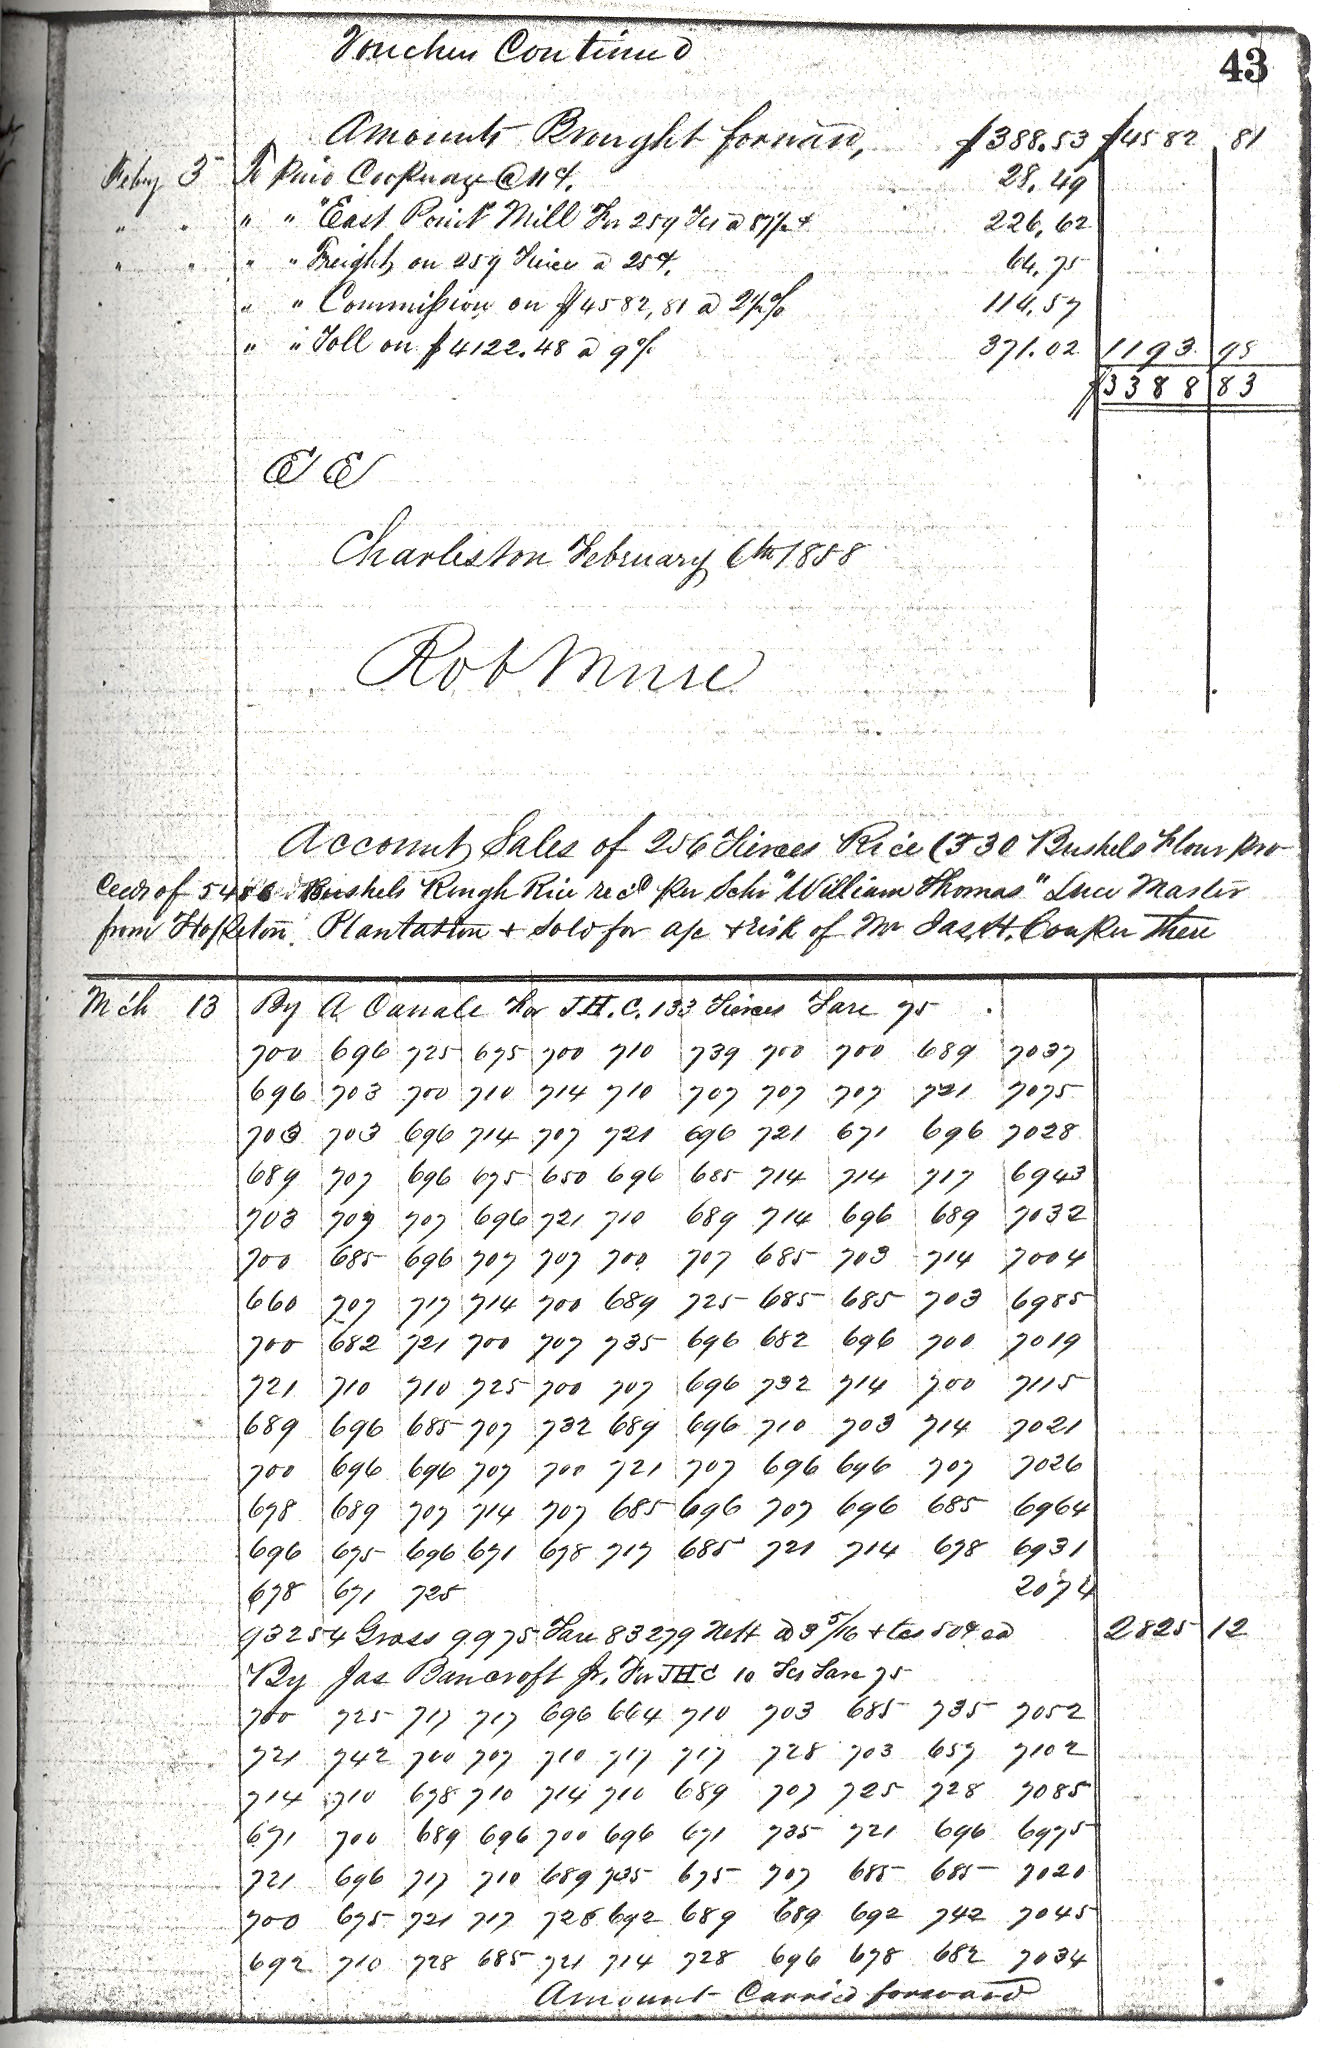 Vouchers Continued
43
Amounts Brought forward, $388.53 $4582 81
Feby 5 To paid Cooperage @ 11¢. 28.49
" " " " "East Point" Mill For 259 Tcs @ 87½¢ 226.62
" " " " Freight on 259 Tierces @ 25¢. 64.75
" " Commission on $4582,81 @ 2½% 114.57
" " Toll on $4122.48 @ 9% 371.02 1193 98
$3388 83
E E
Charleston February 6th 1858
Rob Mure
Account Sales of 256 Tierces Rice (& 30 Bushels Flour pro
ceeds of 5486 Bushels Rough Rice rec'd per Schr "William Thomas" Luce Master
from Hopeton Plantation & Sold for a/c & risk of Mr Jas. H. Couper There
Mch 13 By A Canale For J.H.C. 133 Tierces Tare 75
700 696 725 675 700 710 739 700 700 689 7037
696 703 700 710 714 710 707 707 707 721 7075
703 703 696 714 707 721 696 721 671 696 7028
689 707 696 675 650 696 685 714 714 717 6943
703 707 707 696 721 710 689 714 696 689 7032
700 685 696 707 707 700 707 685 703 714 7004
660 707 717 714 700 689 725 685 685 703 6985
700 682 721 700 707 735 696 682 696 700 7019
721 710 710 725 700 707 696 732 714 700 7115
689 696 685 707 732 689 696 710 703 714 7021
700 696 696 707 700 721 707 696 696 707 7026
678 689 707 714 707 685 696 707 696 685 6964
696 675 696 671 678 717 685 721 714 678 6931
678 671 725 2074
93254 Gross 9975 Tare 83279 Nett @ 3 5/16 & tcs 50¢ ea 2825 12
By Jas Bancroft Jr. For JHC 10 Tcs Tare 75
700 725 717 717 696 664 710 703 685 735 7052
721 742 700 707 710 717 717 728 703 657 7102
714 710 678 710 714 710 689 707 725 728 7085
671 700 689 696 700 696 671 735 721 696 6975
721 696 717 710 689 735 675 707 685 685 7020
700 675 721 717 728 692 689 689 692 742 7045
692 710 728 685 721 714 728 696 678 682 7034
Amount Carried forward